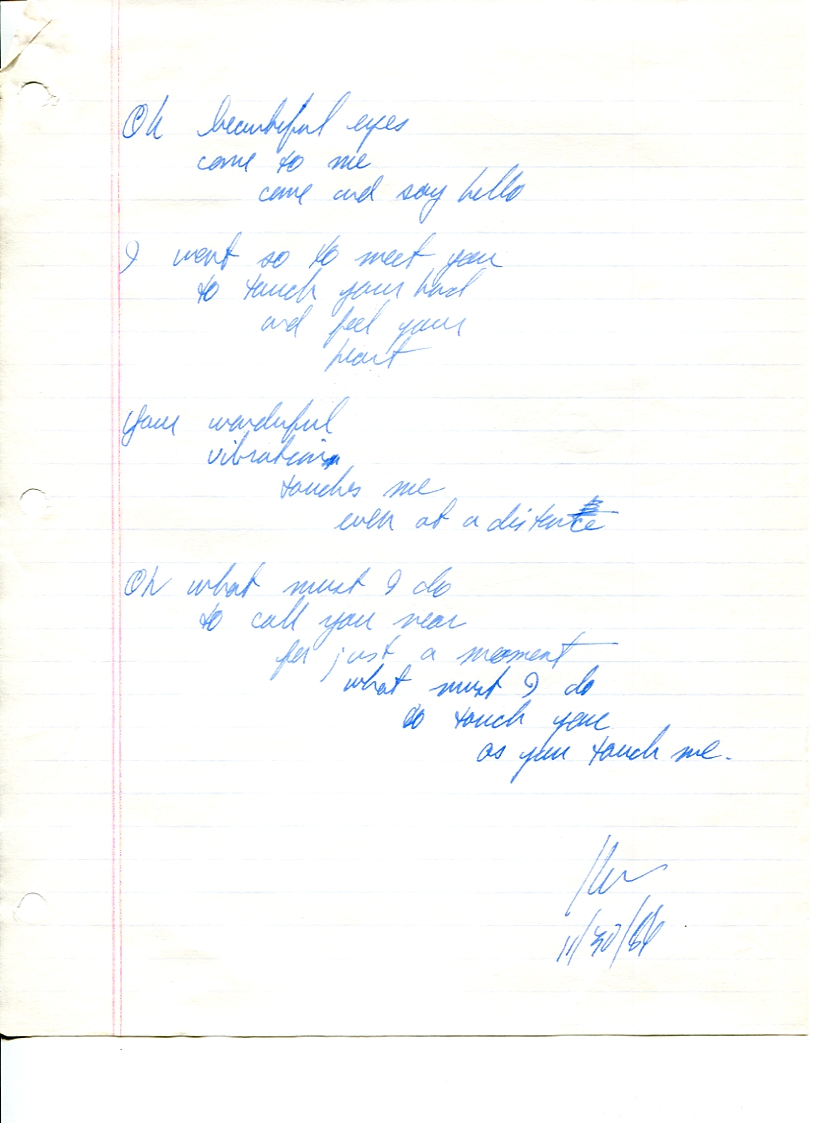 Oh beautiful eyes
come to me
come and say hello
I want so to meet you
to touch your hand
and feel your
heart
your wonderful
vibration
touches me
even at a distance
Oh what must I do
to call you near
for just a moment
what must I do
to touch you
as you touch me.
11/30/84